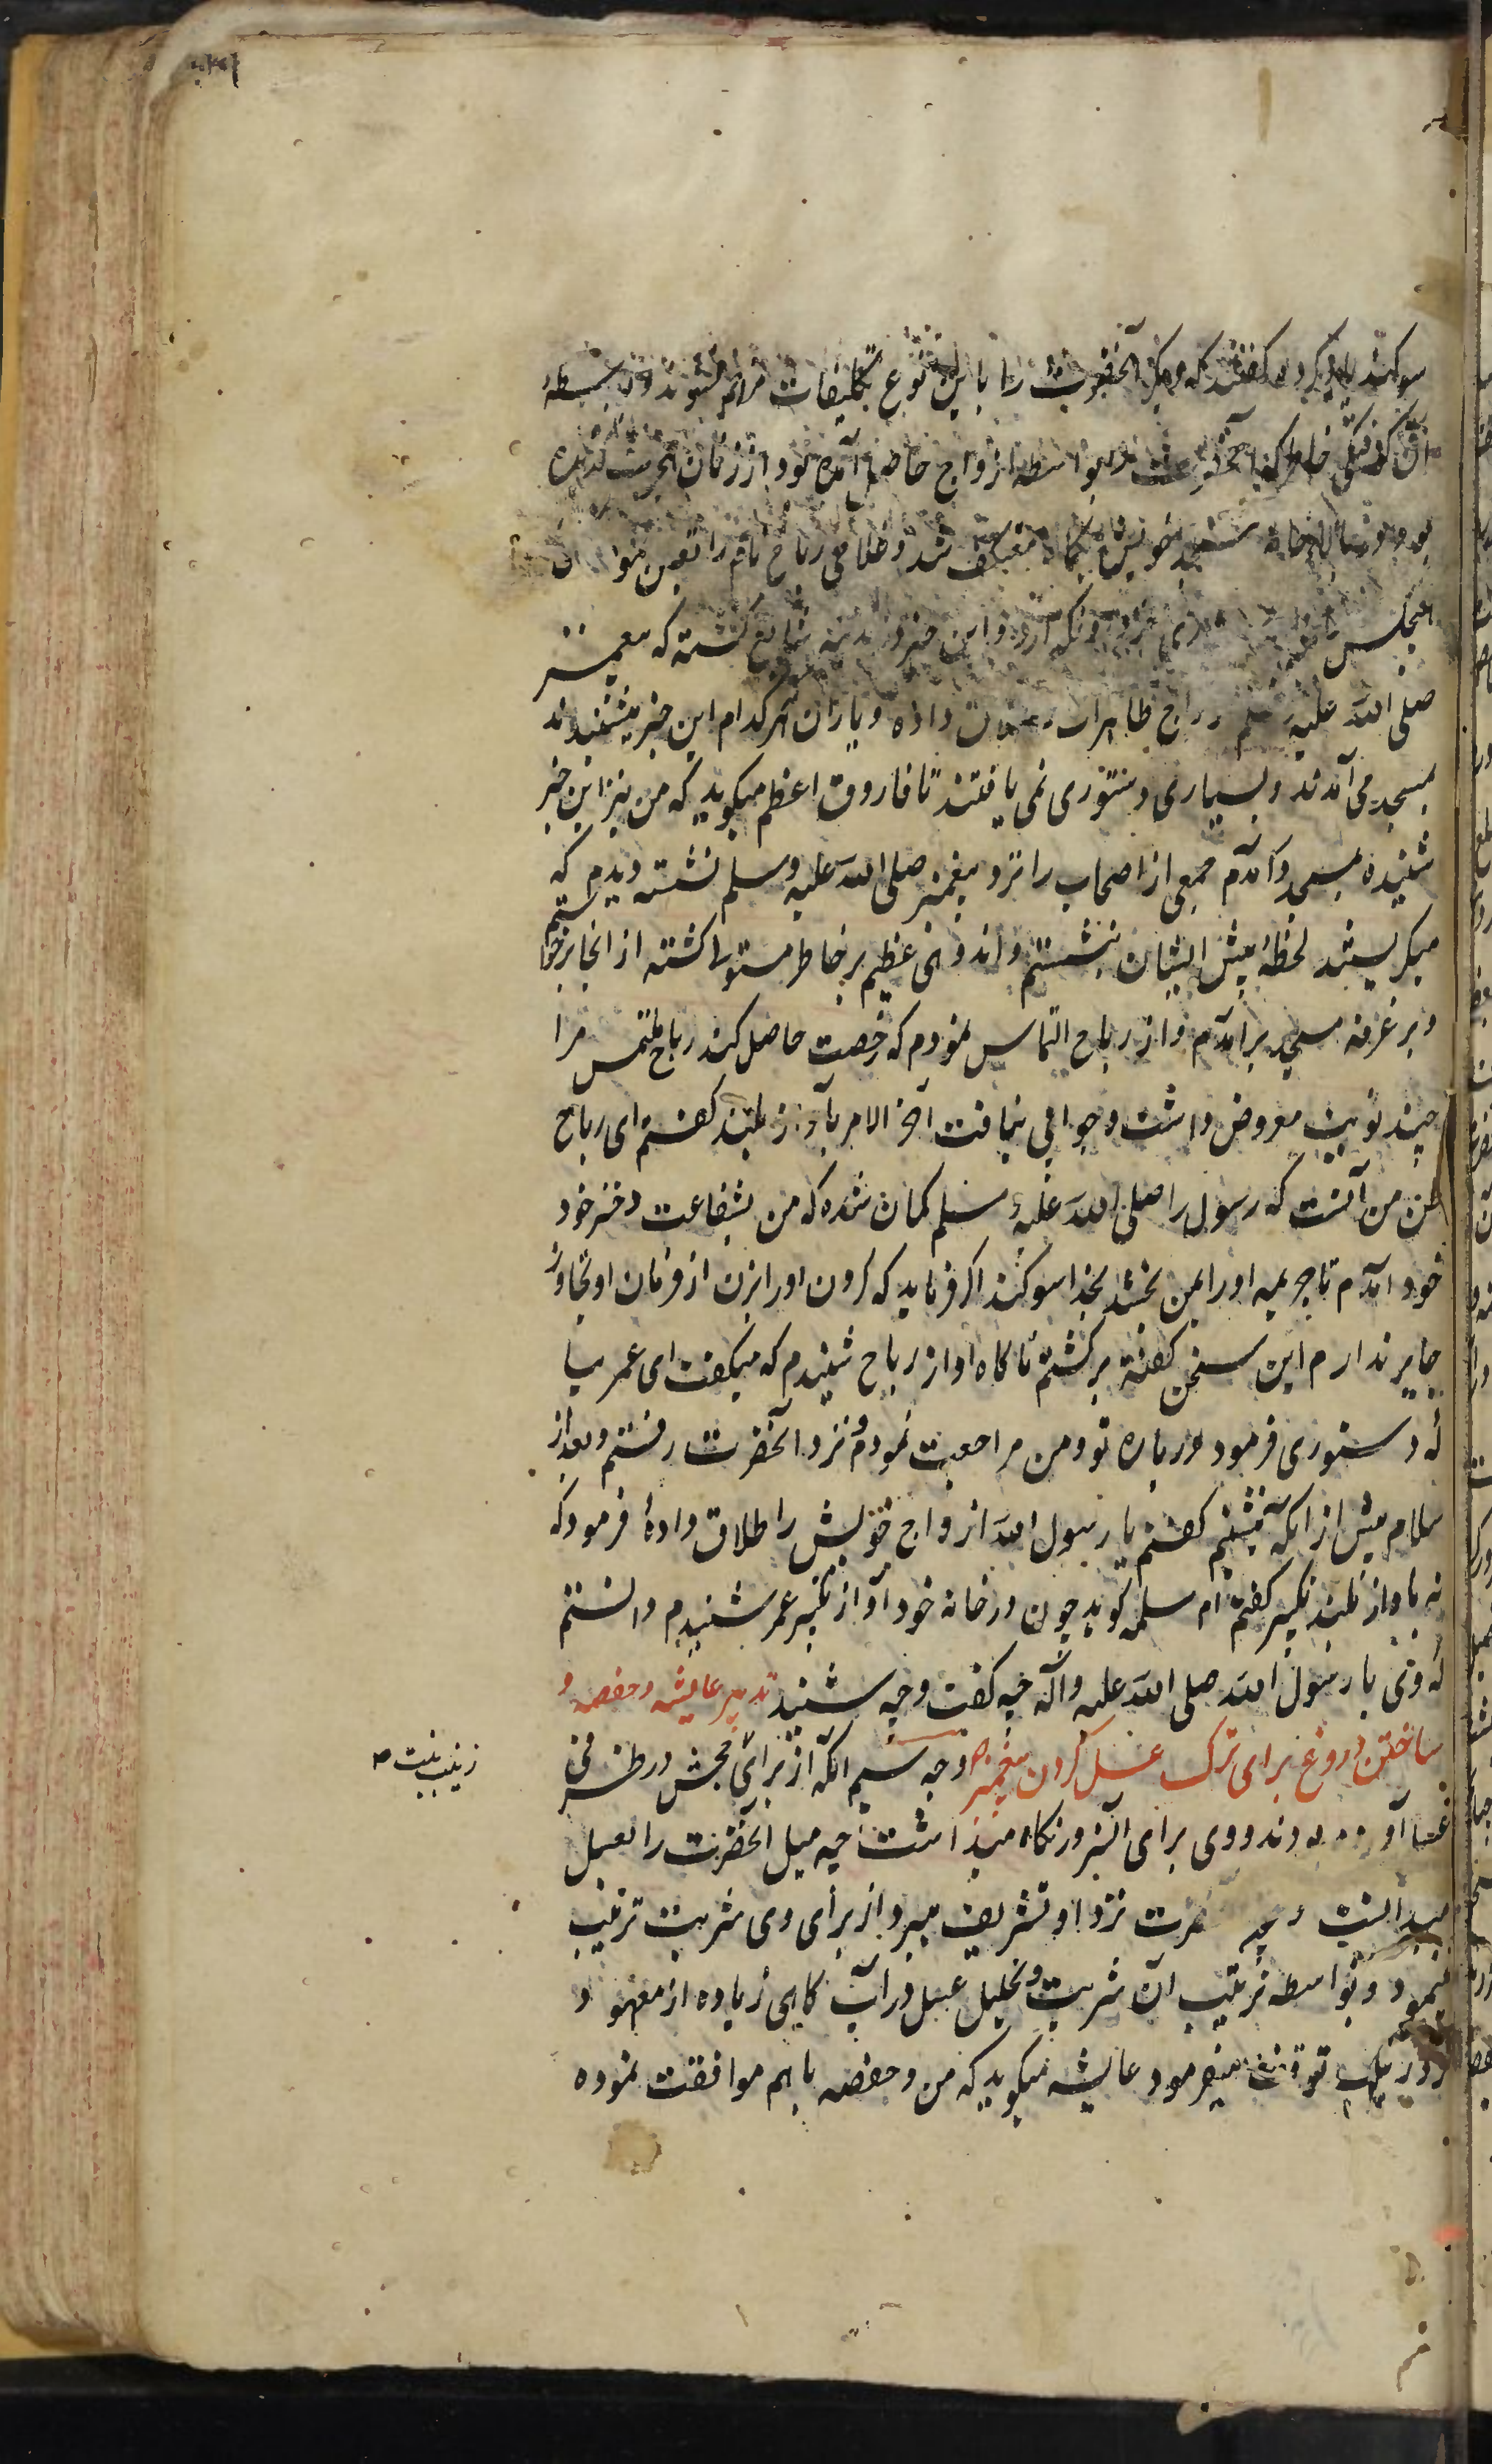 سوکند یاد کرده گفتند که دیگر آنحضرت را باین نوع تکلیفات مزاحم نشوند و بواسطهٔ
آن گرفتگی خاطر که آنحضرت را بواسطه ازواج حاصل آمده بود از زنان
بود و در بالاخانه مسجد خویش یکماه معتکف شد و غلامی رباح نام را تعین نمود
هیچکس و این خبر در مدینه شایع گشته که پیغمبر
صلی الله علیه وسلم ازواج طاهرات را طلاق داده و یاران هر کدام این خبر میشنیدند
بمسجد می آمدند و بسیاری دستوری نمی یافتند تا فاروق اعظم میگوید که من نیز این خبر
شنیده بمسجد آمدم جمعی از اصحاب را نزد پیغمبر صلی الله علیه وسلم نشسته دیدم که
میگریستند لحظهٔ پیش ایشان بنشستم و اندوهی عظیم بر خاطر مستولی گشته از آنجا برخواستم
و بر غرفه مسجد برآمدم و از رباح التماس نمودم که رخصت حاصل کند رباح ملتمس مرا
چند نوبت معروض داشت و جوابی نیافت آخر الامر بآواز بلند گفتم ای رباح
ظن من آنست که رسول را صلی الله علیه وسلم گمان شده که من بشفاعت دختر خود
خود آمدم تا جریمه او را بمن بخشد بخدا سوکند اگر فرماید که گردن او را بزن از فرمان او تجاوز
جایز ندارم این سخن گفته برگشتم ناگاه آواز رباح شنیدم که میگفت ای عمر بیا
که دستوری فرمود درباره تو و من مراجعت نمودم و نزد آنحضرت رفتم و بعد از
سلام پیش از آنکه بنشینم گفتم یا رسول الله ازواج خویش را طلاق دادهٔ فرمود که
نه بآواز بلند تکبیر گفتم ام سلمه گوید چون در خانه خود آواز تکبیر عمر شنیدم دانستم
که وی با رسول الله صلی الله علیه وآله چه گفت و چه شنید تدبیر عایشه و حفصه و
ساختن دروغ برای ترک عسل کردن پیغمبر وجه سیم آنکه از برای جحش در ظرفی
زینب بنت
عسل آورده بودند و وی برای آنسرور نگاه میداشت چه میل آنحضرت را بعسل
میدانست و چون آنحضرت نزد او تشریف میبرد از برای وی شربت ترتیب
مینمود و بواسطه ترتیب آن شربت و تحلیل عسل در آب گاهی زیاده از معهود
نزد زینب توقف میفرمود عایشه میگوید که من و حفصه باهم موافقت نموده